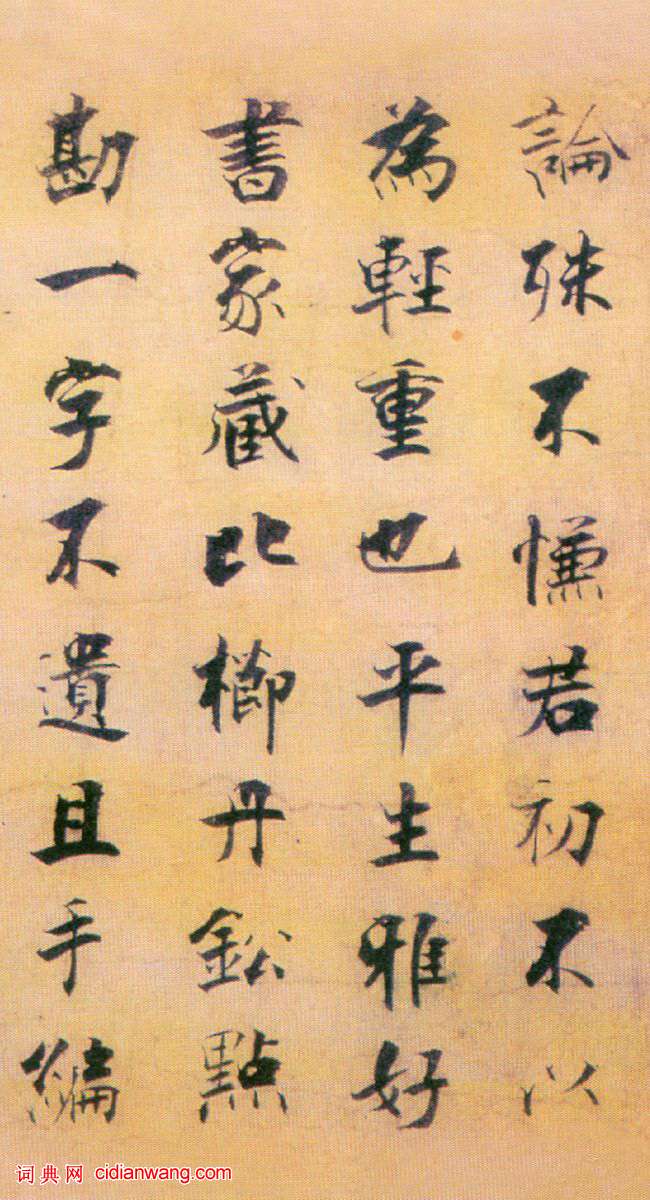 論殊不慊若初不以
為輕重也平生雅好
書家藏比櫛丹鈆點
勘一字不遺且手編
词典网 cidianwang.com